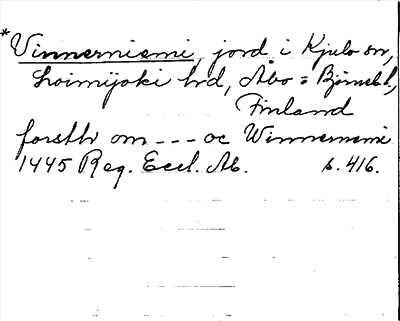 *Vinnerniemi, jord i Kjulo sn,
Loimijoki hd, Åbo = Björneb.l,
Finland
forsth om --- oc Winnernemi
1445 Reg. Eccl. Ab. s. 416.